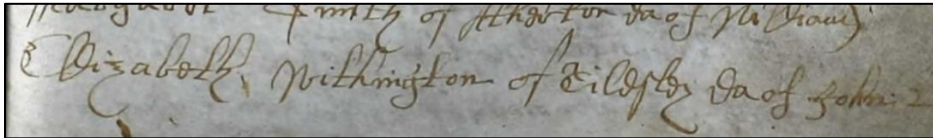 Margaret Smith of Atherton da of William
Elizabeth Withington of Tildsley da of John